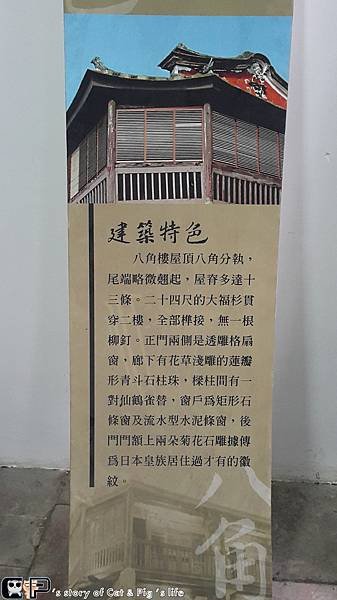 建築特色
八角樓屋頂八角分執，
尾端略微翹起，屋脊多達十
三條。二十四尺的大福杉貫
穿二樓，全部榫接，無一根
柳釘。正門兩側是透雕格扇
窗，廊下有花草淺雕的蓮瓣
形青斗石柱珠，樑柱間有一
對仙鶴雀替，窗戶為矩形石
條窗及流水型水泥條窗，後
門門額上兩朵菊花石雕據傳
為日本皇族居住過才有的徽
紋。
八角
's story of Cat & Pig 's life